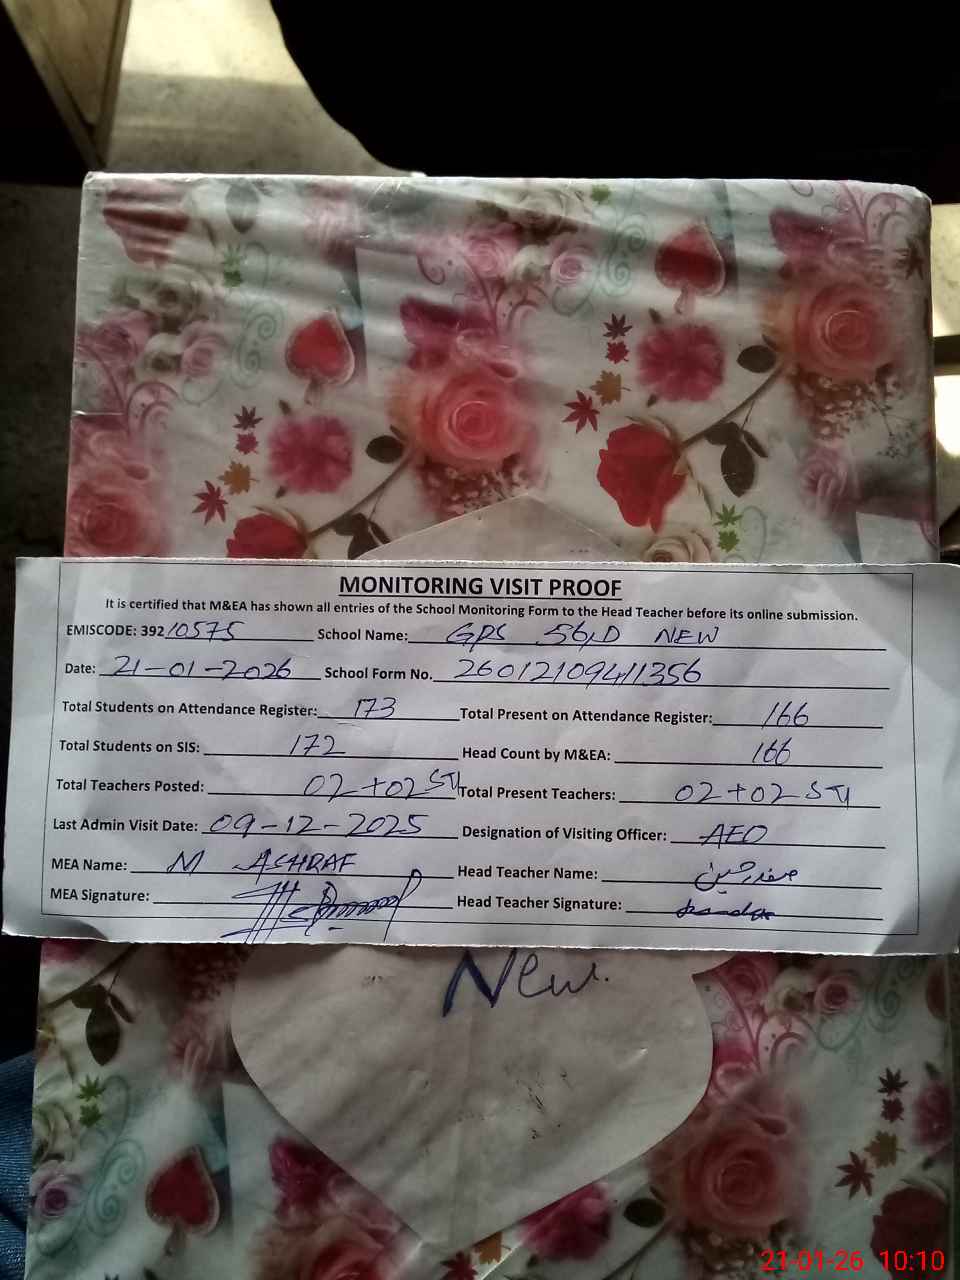 MONITORING VISIT PROOF
It is certified that M&EA has shown all entries of the School Monitoring Form to the Head Teacher before its online submission.
EMISCODE: 392 10575 School Name: GPS 56/D NEW
Date: 21-01-2026 School Form No. 26012109411356
Total Students on Attendance Register: 173 Total Present on Attendance Register: 166
Total Students on SIS: 172 Head Count by M&EA: 166
Total Teachers Posted: 02+02 STI Total Present Teachers: 02+02 STI
Last Admin Visit Date: 09-12-2025 Designation of Visiting Officer: AEO
MEA Name: M ASHRAF Head Teacher Name: صفدر حسین
MEA Signature: Head Teacher Signature:
New.
21-01-26 10:10